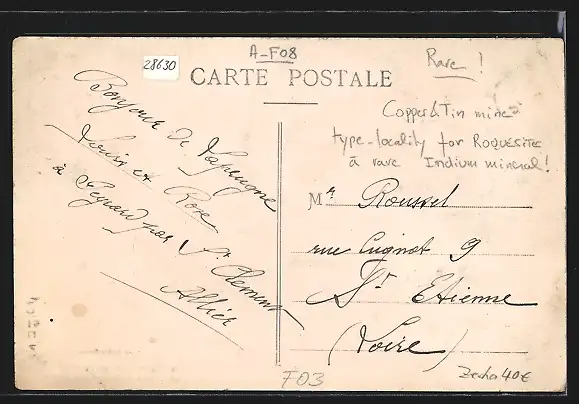 28630
A-F08
Rare !
CARTE POSTALE
Copper & Tin mine
type-locality for ROQUESITE
a rare Indium mineral!
Bonjour de Lapeugne
Louis et Rose
à Peguand par St Clement
Allier
Mr Roussel
rue Cugnot 9
St Etienne
(Loire)
F03
40€